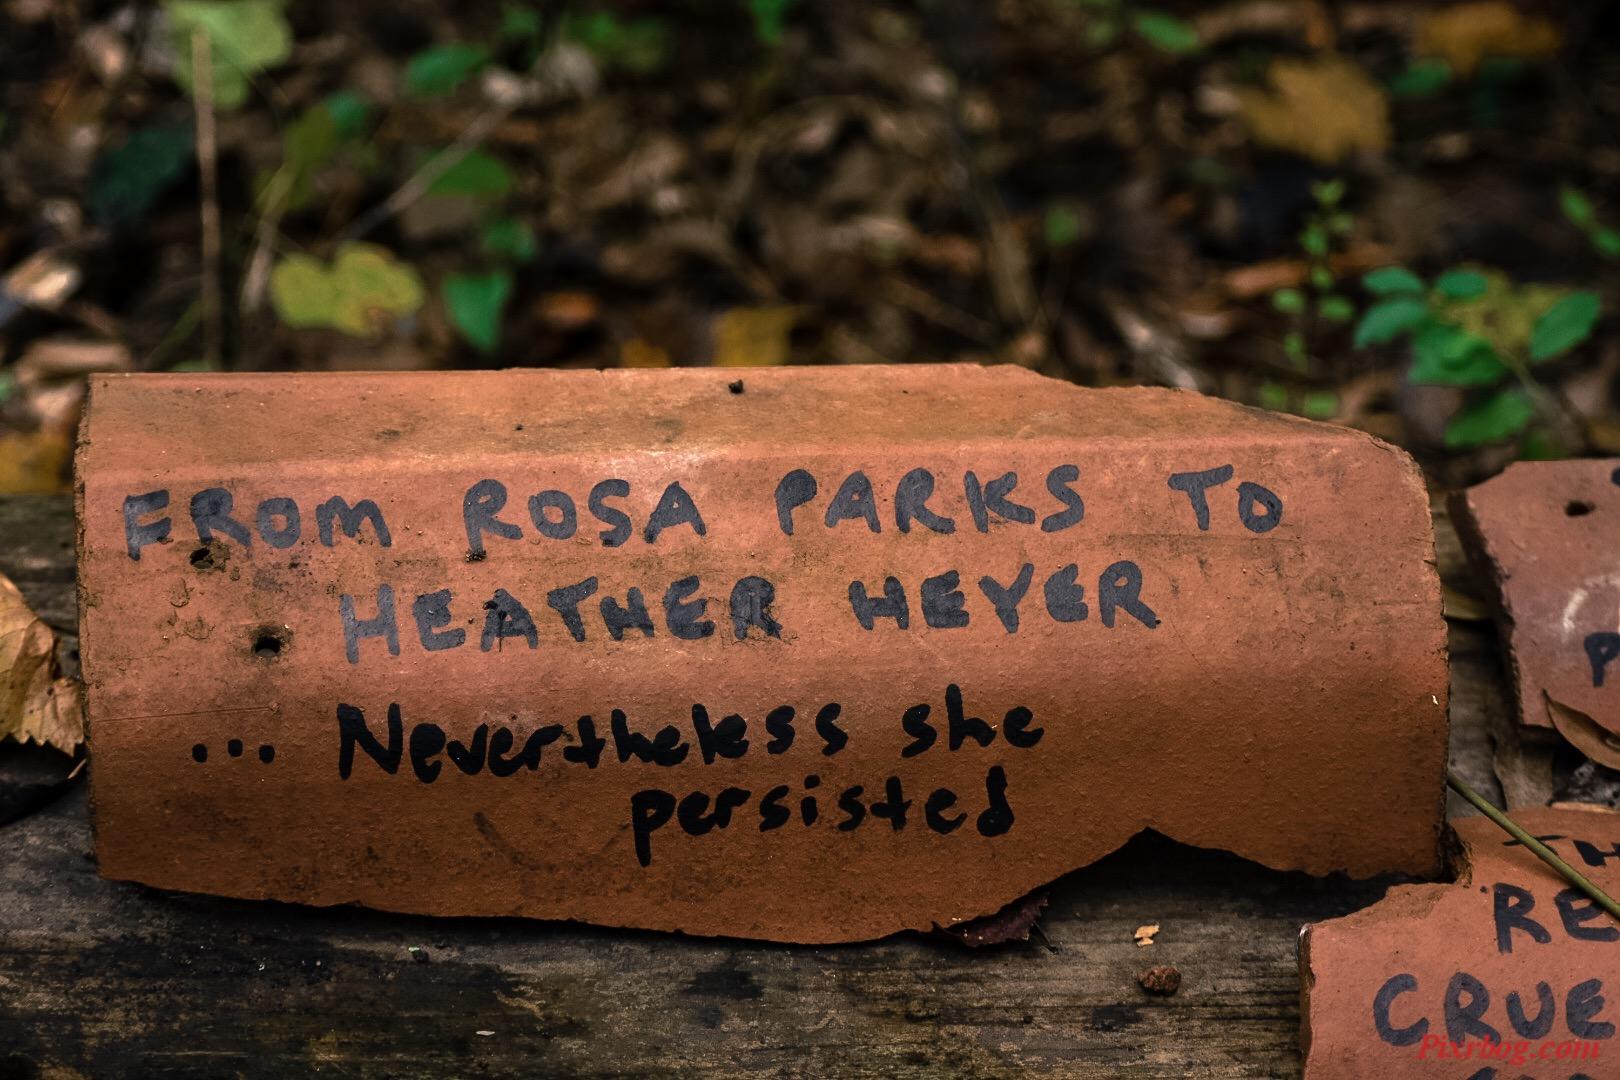 FROM ROSA PARKS TO
HEATHER HEYER
... Nevertheless she
persisted
Pixrbog.com